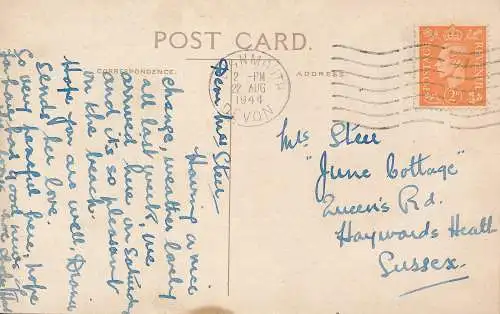 POST CARD.
CORRESPONDENCE.
ADDRESS
2 - PM
22 AUG
1944
DEVON
POSTAGE
REVENUE
Mrs Steer
"June Cottage"
Queen's Rd.
Haywards Heath
Sussex.
Dear Mrs Steer
Having a nice
change, weather lovely
all last week, we
arrived here on Saturday
and it's so pleasant
on the beach.
Hope you are well, Diana
sends her love.
So very peaceful here, hope
good news of